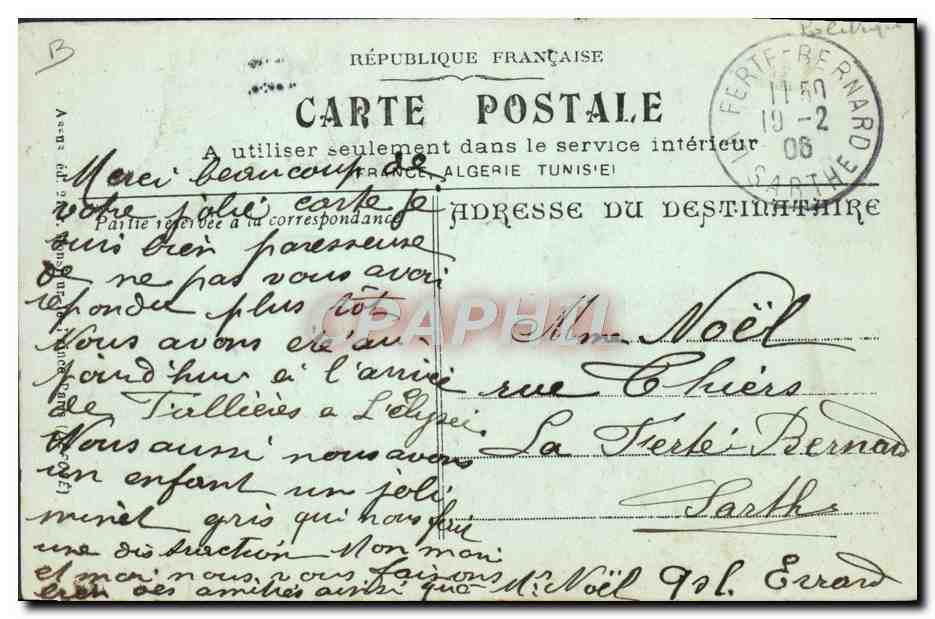 B
RÉPUBLIQUE FRANÇAISE
CARTE POSTALE
A utiliser seulement dans le service intérieur
(FRANCE, ALGERIE TUNISIE)
Partie réservée à la correspondance
ADRESSE DU DESTINATAIRE
LA FERTE-BERNARD
11 50
19 -2
06
SARTHE
Merci beaucoup de
votre jolie carte je
suis bien paresseuse
de ne pas vous avoir
répondu plus tôt
Nous avons été au-
jourd'hui à l'arrivée
de Fallières a L'Elysée
Nous aussi nous avons
un enfant un joli
minet gris qui nous fait
une distraction Mon mari
et moi nous vous faisons
bien des amitiés ainsi qu'à Mr Noël
Errard
Mme Noël
rue Thiers
La Ferté-Bernard
Sarthe
CPAPHIL